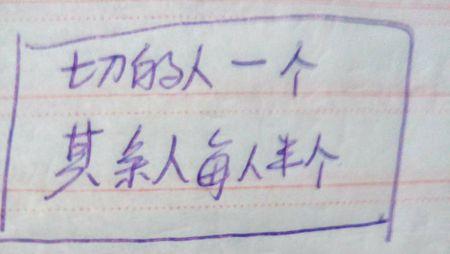 切的人一个
其余人每人半个